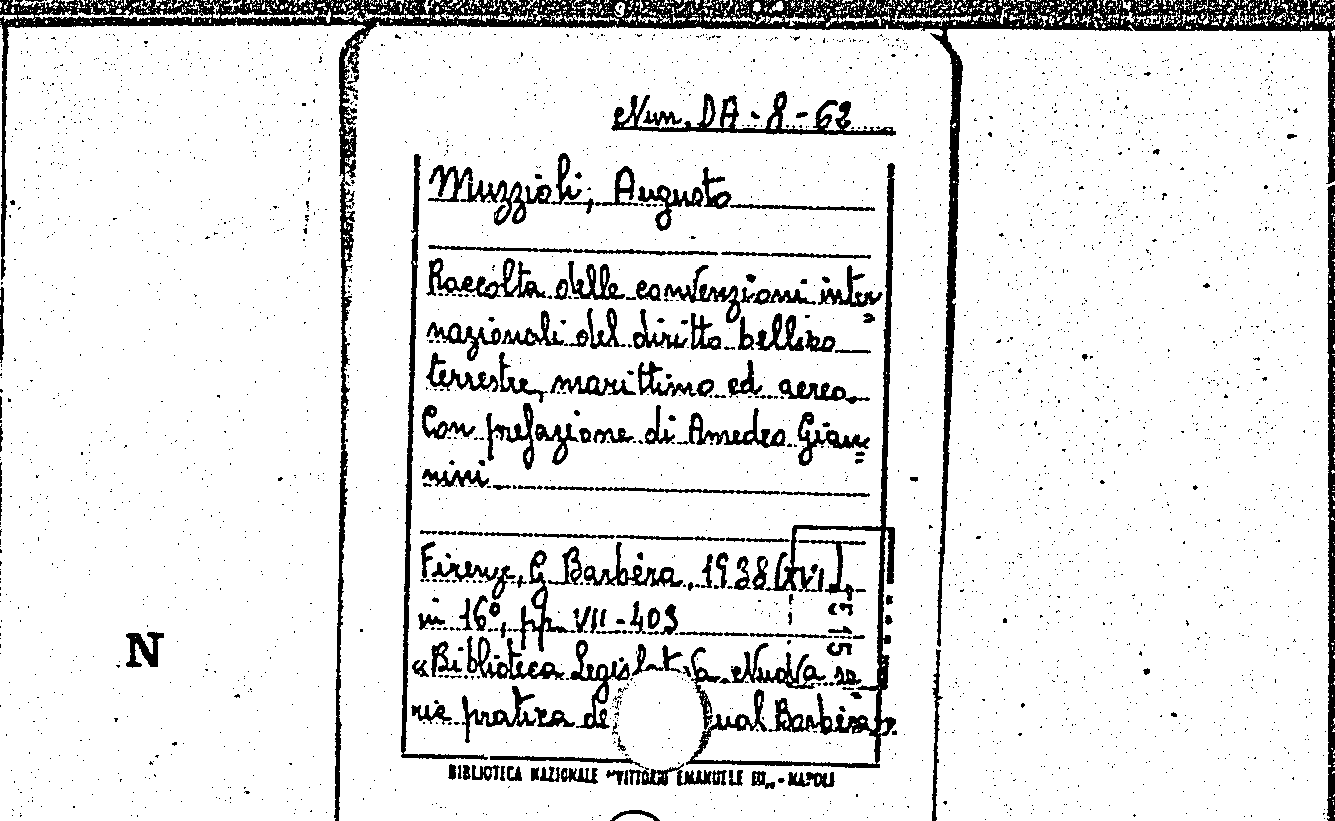 Nun. DA-8-62
Muzzioli, Augusto
Raccolta delle convenzioni inter=
nazionali del diritto bellico
terrestre, marittimo ed aereo.
Con prefazione di Amedeo Gian=
nini
Firenze, G. Barbèra, 1938 (XVI)
in 16°, pp. VII-403
«Biblioteca Legislativa. Nuova se=
rie pratica de ual Barbèra».
N
BIBLIOTECA NAZIONALE "VITTORIO EMANUELE III„ - NAPOLI